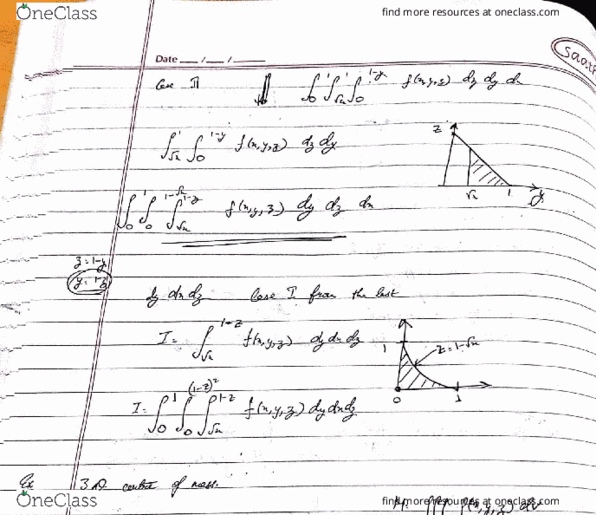 OneClass
find more resources at oneclass.com
Date __ / __ / __
Case II ⇓ ∫₀¹ ∫_√x^1 ∫₀^(1-y) f(x,y,z) dz dy dx
∫_√x^1 ∫₀^(1-y) f(x,y,z) dz dy
z
√x 1 y
∫₀¹ ∫₀^(1-√x) ∫_√x^(1-z) f(x,y,z) dy dz dx
z=1-y
y=1-z
dy dx dz Case I from the last
I = ∫_√x^(1-z) f(x,y,z) dy dx dz
1 z=1-√x
0 1
I = ∫₀¹ ∫₀^(1-z)² ∫_√x^(1-z) f(x,y,z) dy dx dz
Ex 3D centre of mass.
OneClass
find more resources at oneclass.com